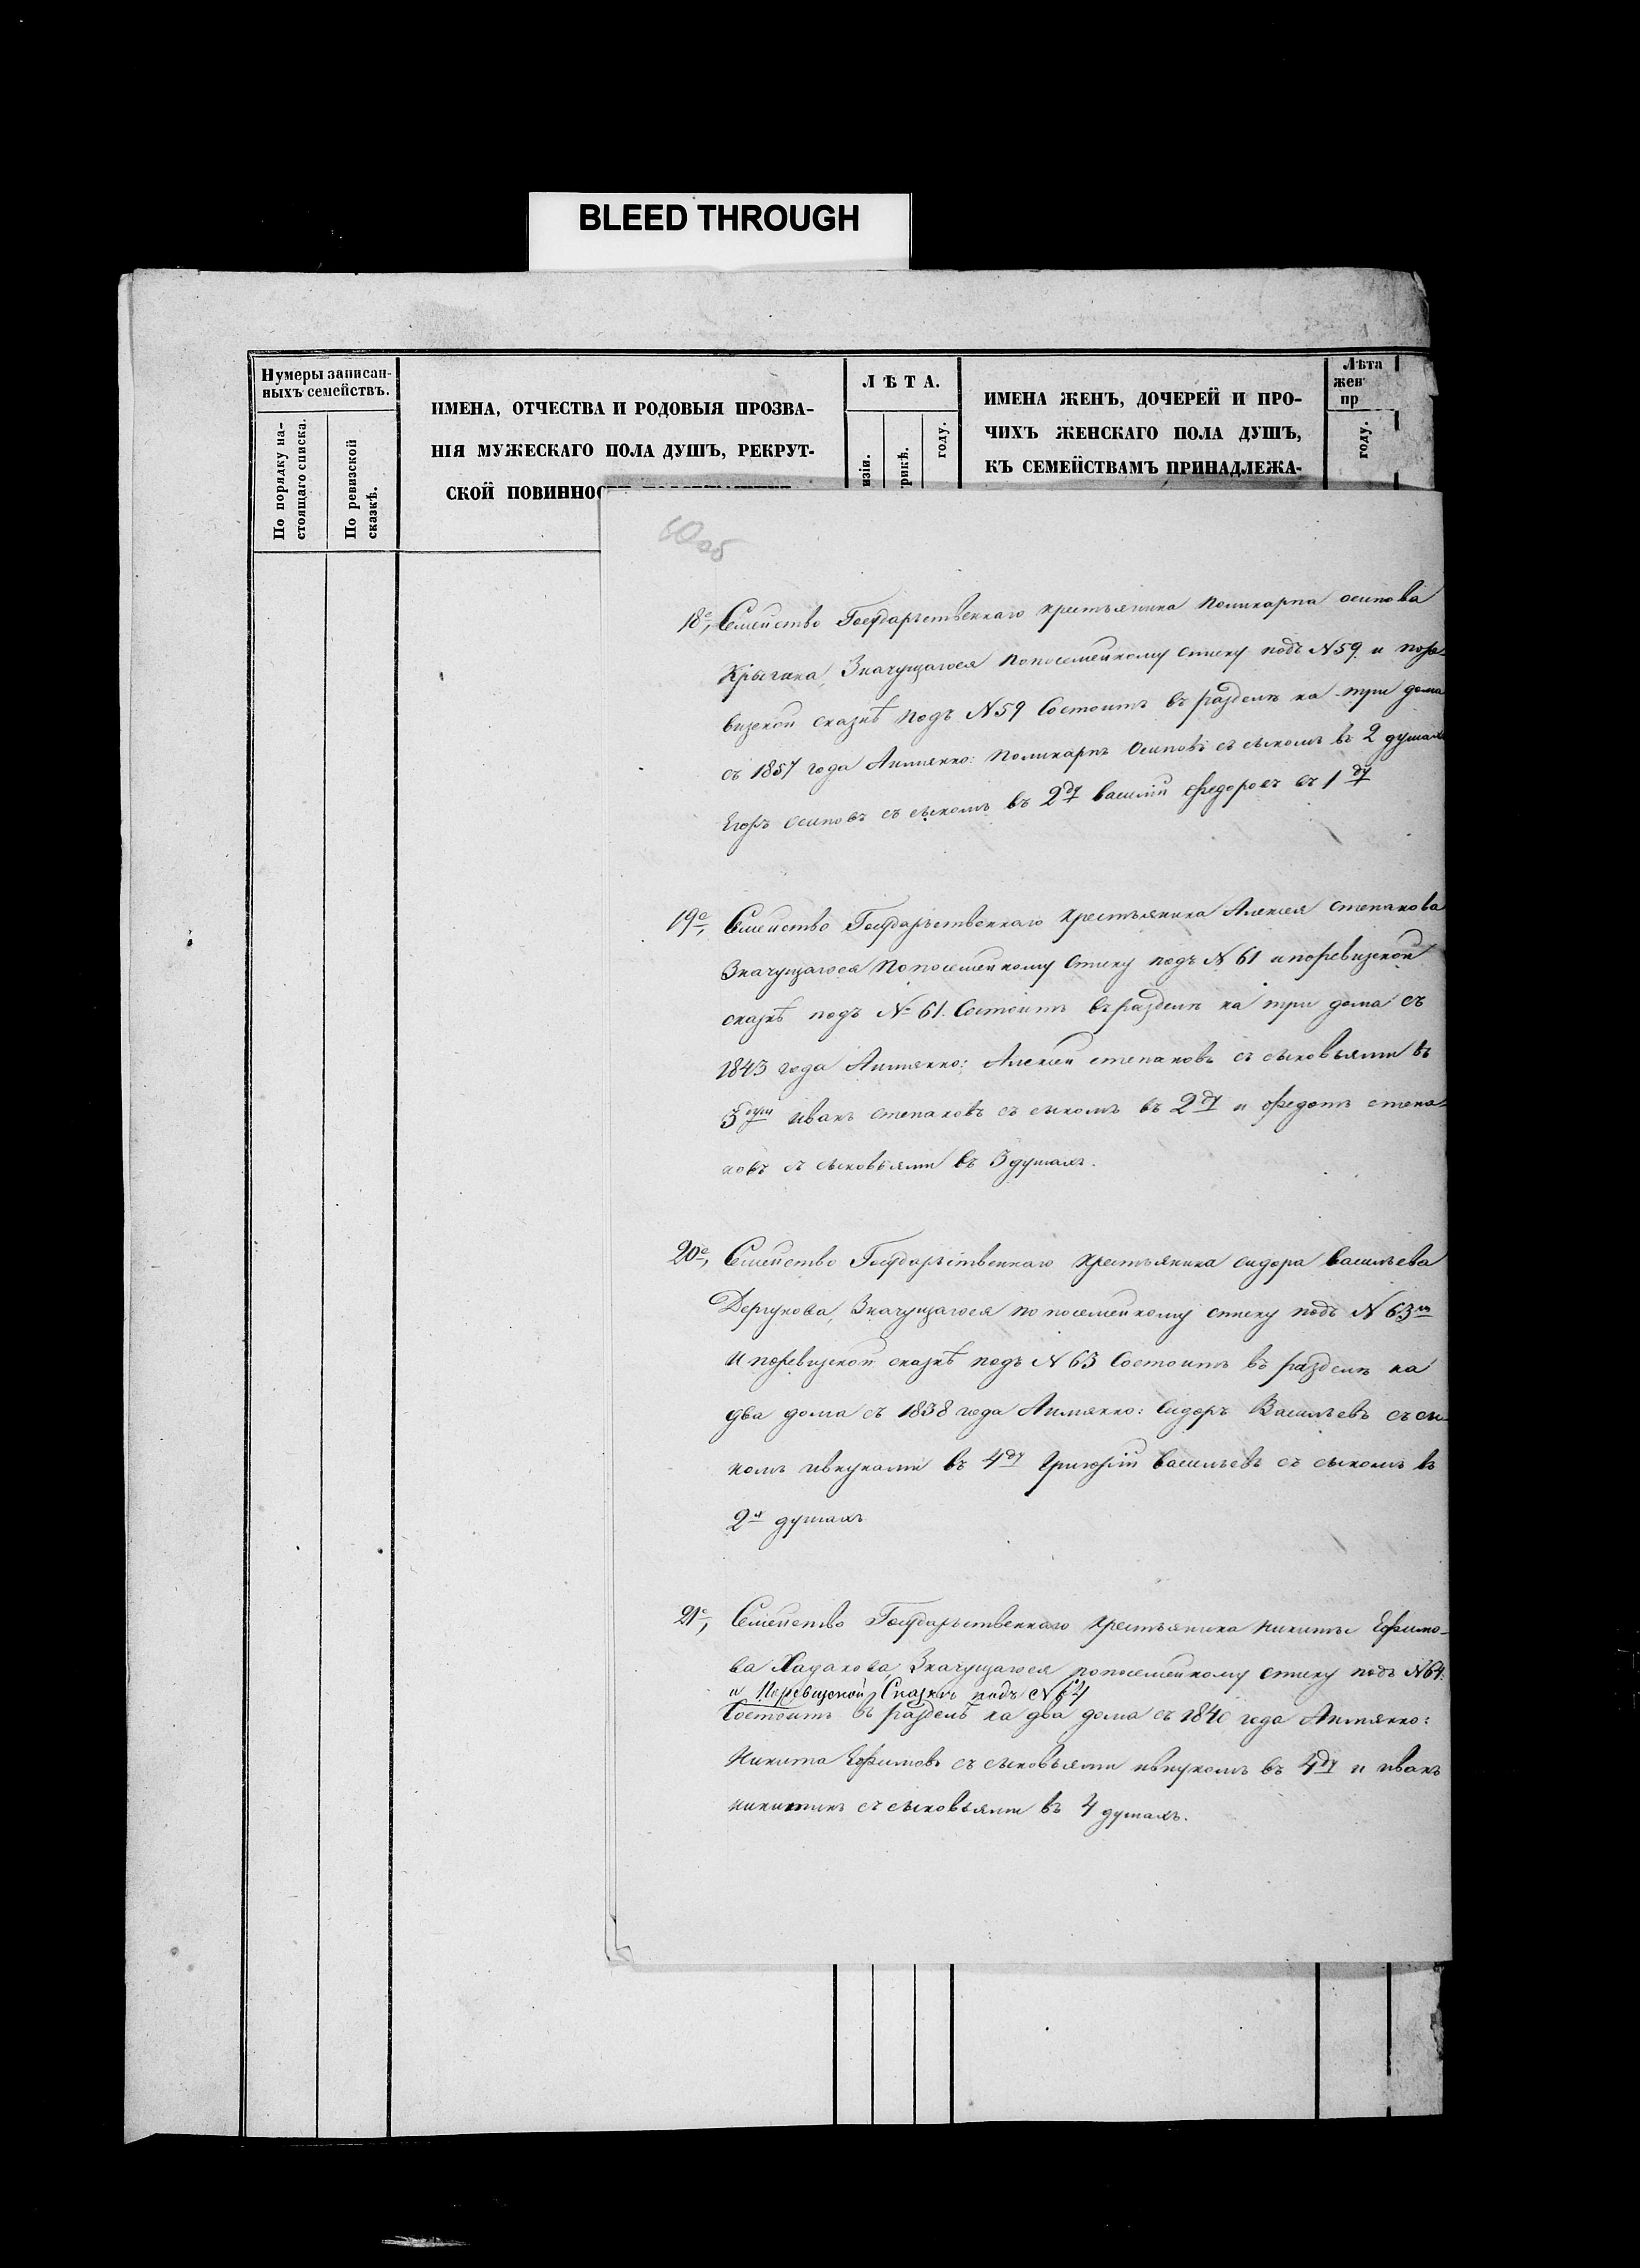 BLEED THROUGH
Нумеры записан-
ныхъ семействъ.
По порядку на-
стоящаго списка.
По ревизской
сказкѣ.
ИМЕНА, ОТЧЕСТВА И РОДОВЫЯ ПРОЗВА-
НІЯ МУЖЕСКАГО ПОЛА ДУШЪ, РЕКРУТ-
СКОЙ ПОВИННОС
ЛѢТА.
изіи.
рикѣ.
году.
ИМЕНА ЖЕНЪ, ДОЧЕРЕЙ И ПРО-
ЧИХЪ ЖЕНСКАГО ПОЛА ДУШЪ,
КЪ СЕМЕЙСТВАМЪ ПРИНАДЛЕЖА-
Лѣта
жен
пр
году.
60об
18е, Семейство Государственнаго крестьянина Поликарпа осипова
Значущагося попосемейному списку подъ N59 и поре-
визской сказкѣ подъ N59 Состоитъ въ разделѣ на три дома
съ 1857 года Аимянно: Поликарпъ Осиповъ съ сыномъ въ 2 душахъ
Егоръ Осиповъ съ сыномъ въ 2ду василій федоровъ въ 1ду
19е, Семейство Государственнаго крестьянина Алексея степанова
Значущагося Попосемейному списку подъ N61 ипоревизской
сказкѣ подъ N61. Состоитъ въразделѣ на три дома съ
1843 года Аимянно: Алексей степановъ съ сыновьями въ
3душ иванъ степановъ съ сыномъ въ 2ду и федотъ степа-
новъ съ сыновьями въ 3 душахъ.
20е, Семейство Государственнаго крестьянина сидора васильева
Значущагося по посемейному списку подъ N63м
и поревизской сказкѣ подъ N63 Состоитъ въ разделѣ на
два дома съ 1838 года Аимянно: Сидоръ Васильевъ съ сы-
номъ ивнуками въ 4ду Григорій васильевъ съ сыномъ въ
2х душахъ
21е, Семейство Государственнаго крестьянина никиты Ефимо-
ва Значущагося попосемейному списку подъ N64.
и Поревизской Сказкѣ подъ N64
Состоитъ въ разделѣ на два дома съ 1840 года Аимянно:
Никита Ефимовъ съ сыновьями ивнукомъ въ 4ду и иванъ
никитинъ съ сыновьями въ 4 душахъ.